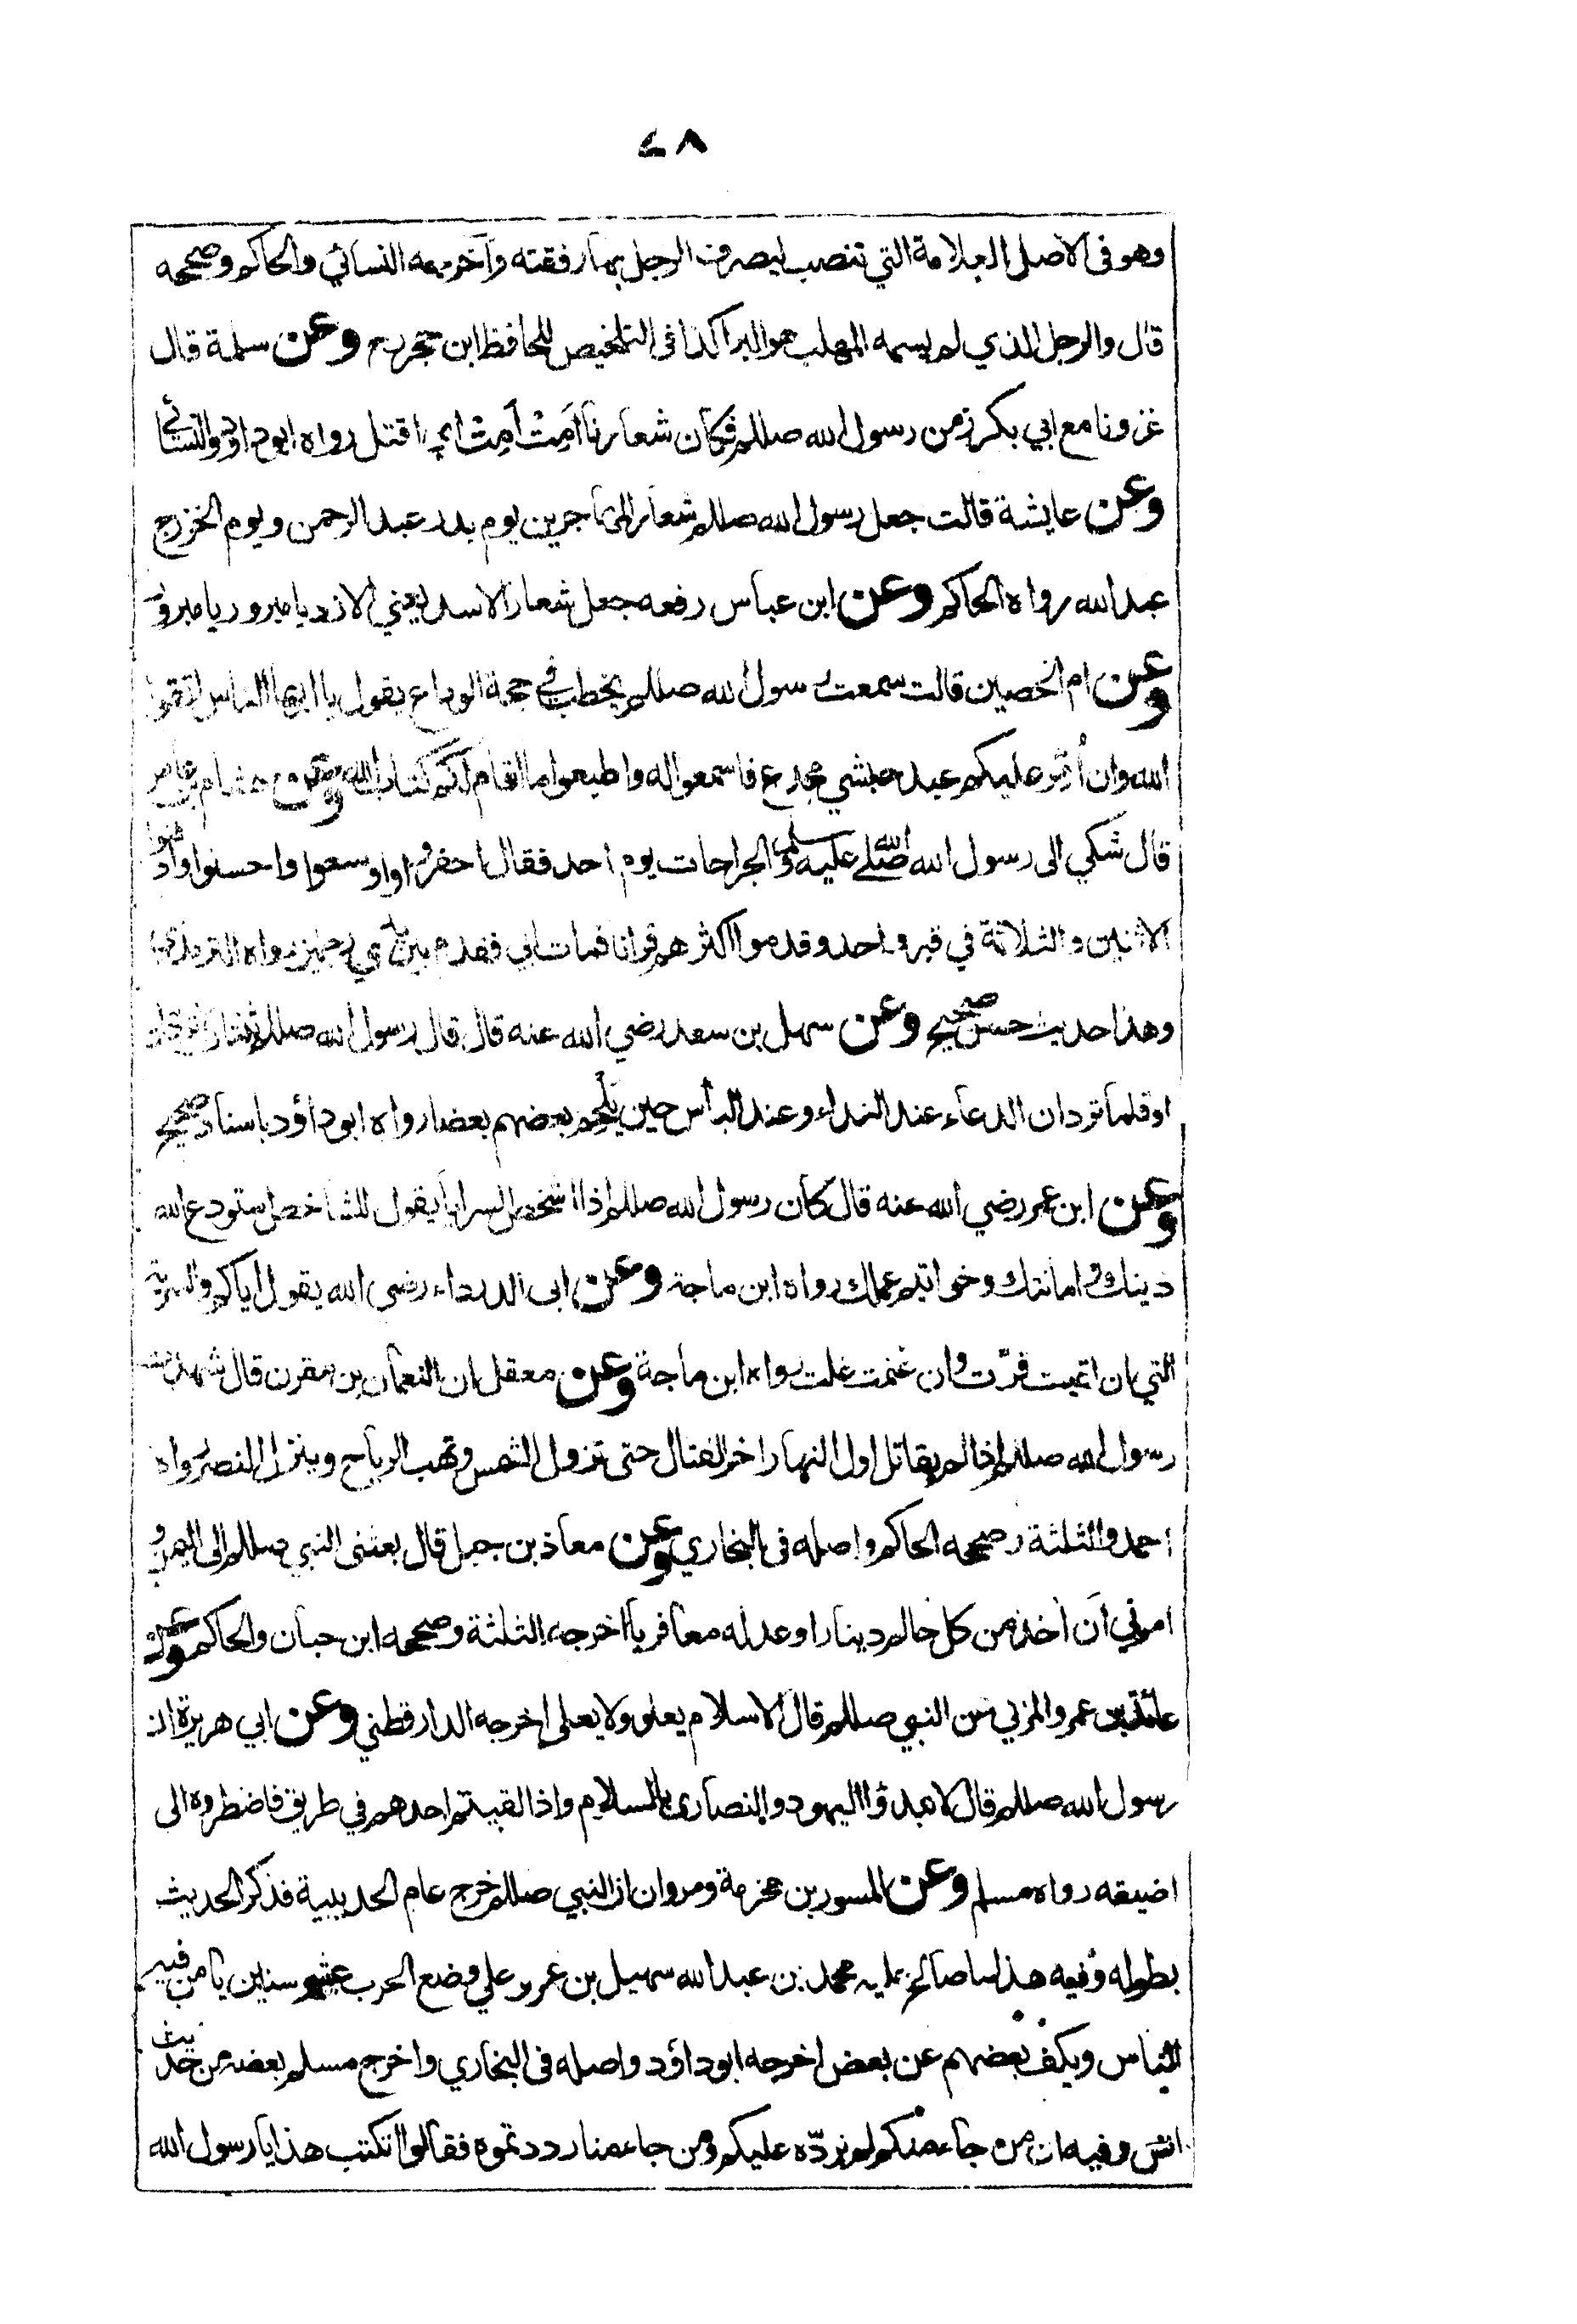 ٤٨
وهو فى الاصل العلامة التي تنصب ليصرف الرجل بها رفقته واخرجه النسائي والحاكم وصححه
قال والرجل الذي لم يسمه المهلب هو البرا كذا فى التلخيص للحافظ ابن حجر رح وعن سلمة قال
غزونا مع ابي بكر زمن رسول الله صللم فكان شعارنا اَمِتْ اَمِتْ اى اقتل رواه ابو داؤد والنسائے
وعن عايشة قالت جعل رسول الله صللم شعار المهاجرين يوم بدر عبد الرحمن ويوم الخزرج
عبد الله رواه الحاكم وعن ابن عباس رفعه جعل شعار الاسد يعني الازد يا مبرور يا مبرور
وعن ام الحصين قالت سمعت رسول الله صللم يخطب في حجة الوداع يقول يا ايها الناس اتقوا
الله وان أمّر عليكم عبد حبشي مجدع فاسمعوا له واطيعوا ما اقام لكم كتاب الله وعن هشام بن عامر
قال شكي الى رسول الله صلى الله عليه وسلم الجراحات يوم احد فقال احفروا واوسعوا واحسنوا وادفنوا
الاثنين والثلاثة في قبر واحد وقدموا اكثرهم قرانا فمات ابي فقدم بين يدي رجلين رواه الترمذي
وهذا حديث حسن صحيح وعن سهل بن سعد رضي الله عنه قال قال رسول الله صللم ثنتان لا تردان
او قلما تردان الدعاء عند النداء وعند البأس حين يُلْحِم بعضهم بعضا رواه ابو داؤد باسناد صحيح
وعن ابن عمر رضي الله عنه قال كان رسول الله صللم اذا اشخص السرايا يقول للشاخص استودع الله
دينك وامانتك وخواتيم عملك رواه ابن ماجة وعن ابى الدرداء رضى الله يقول اياكم والسرية
التي ان لقيت فرّت وان غنمت غلت رواه ابن ماجة وعن معقل ان النعمان بن مقرن قال شهدت
رسول الله صللم اذا لم يقاتل اول النهار اخر القتال حتى تزول الشمس وتهب الرياح وينزل النصر رواه
احمد والثلثة وصححه الحاكم واصله فى البخاري وعن معاذ بن جبل قال بعثنى النبي صللم الى اليمن و
امرني اَن اٰخذ من كل حالم دينارا وعدله معافريا اخرجه الثلثة وصححه ابن حبان والحاكم وعن
عائذ بن عمرو المزني عن النبي صللم قال الاسلام يعلو ولا يعلى اخرجه الدارقطني وعن ابي هريرة ان
رسول الله صللم قال لا تبدؤا اليهود والنصارى بالسلام واذا لقيتم احدهم في طريق فاضطروه الى
اضيقه رواه مسلم وعن المسور بن مخرمة ومروان ان النبي صللم خرج عام الحديبية فذكر الحديث
بطوله وفيه هذا ما صالح عليه محمد بن عبد الله سهيل بن عمرو على وضع الحرب عشر سنين يأمن فيها
الناس ويكف بعضهم عن بعض اخرجه ابو داؤد واصله فى البخاري واخرج مسلم بعضه من حديث
انس وفيه ان من جاء منكم لم نردّه عليكم ومن جاء منا رددتموه فقالوا اتكتب هذا يا رسول الله